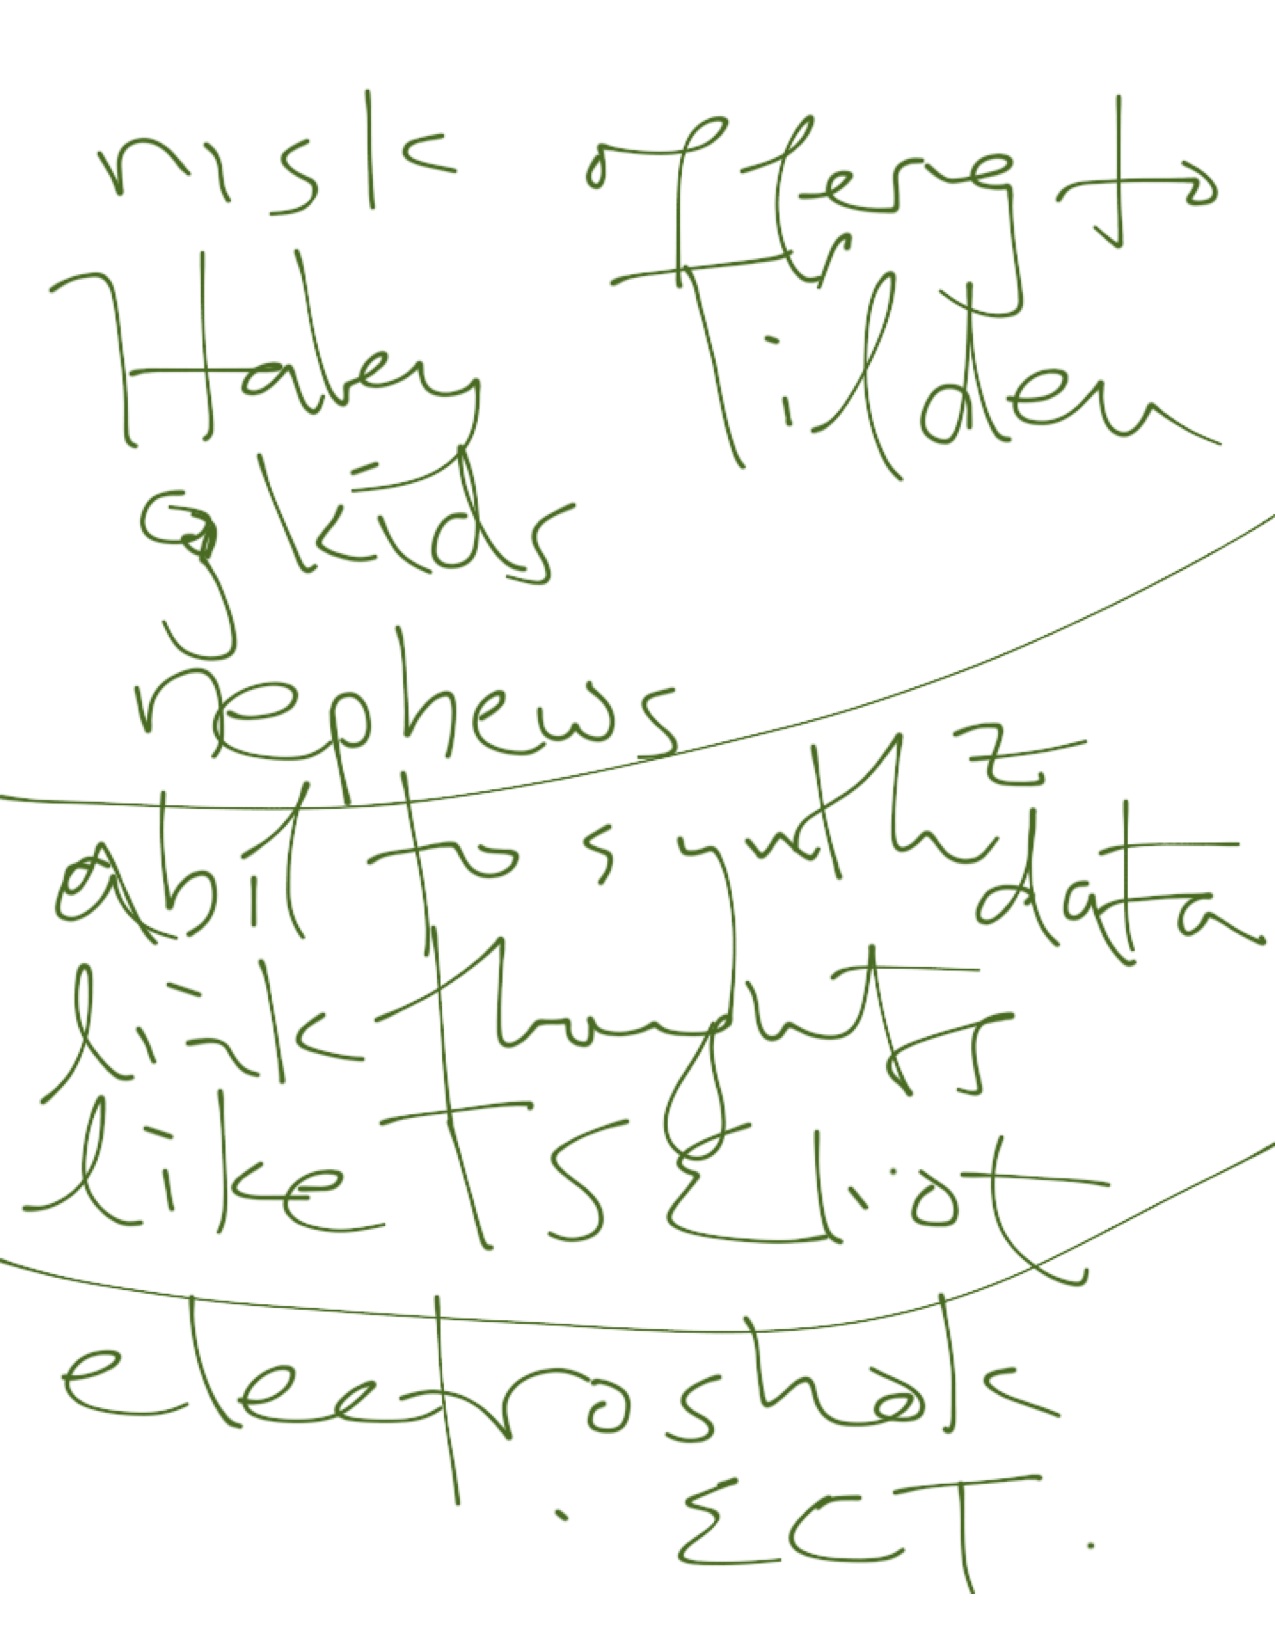 risk offerg to
Haley Tilden
g kids
nephews
abil to synthz
data
link thoughts
like TS Eliot
electroshok
. ECT.